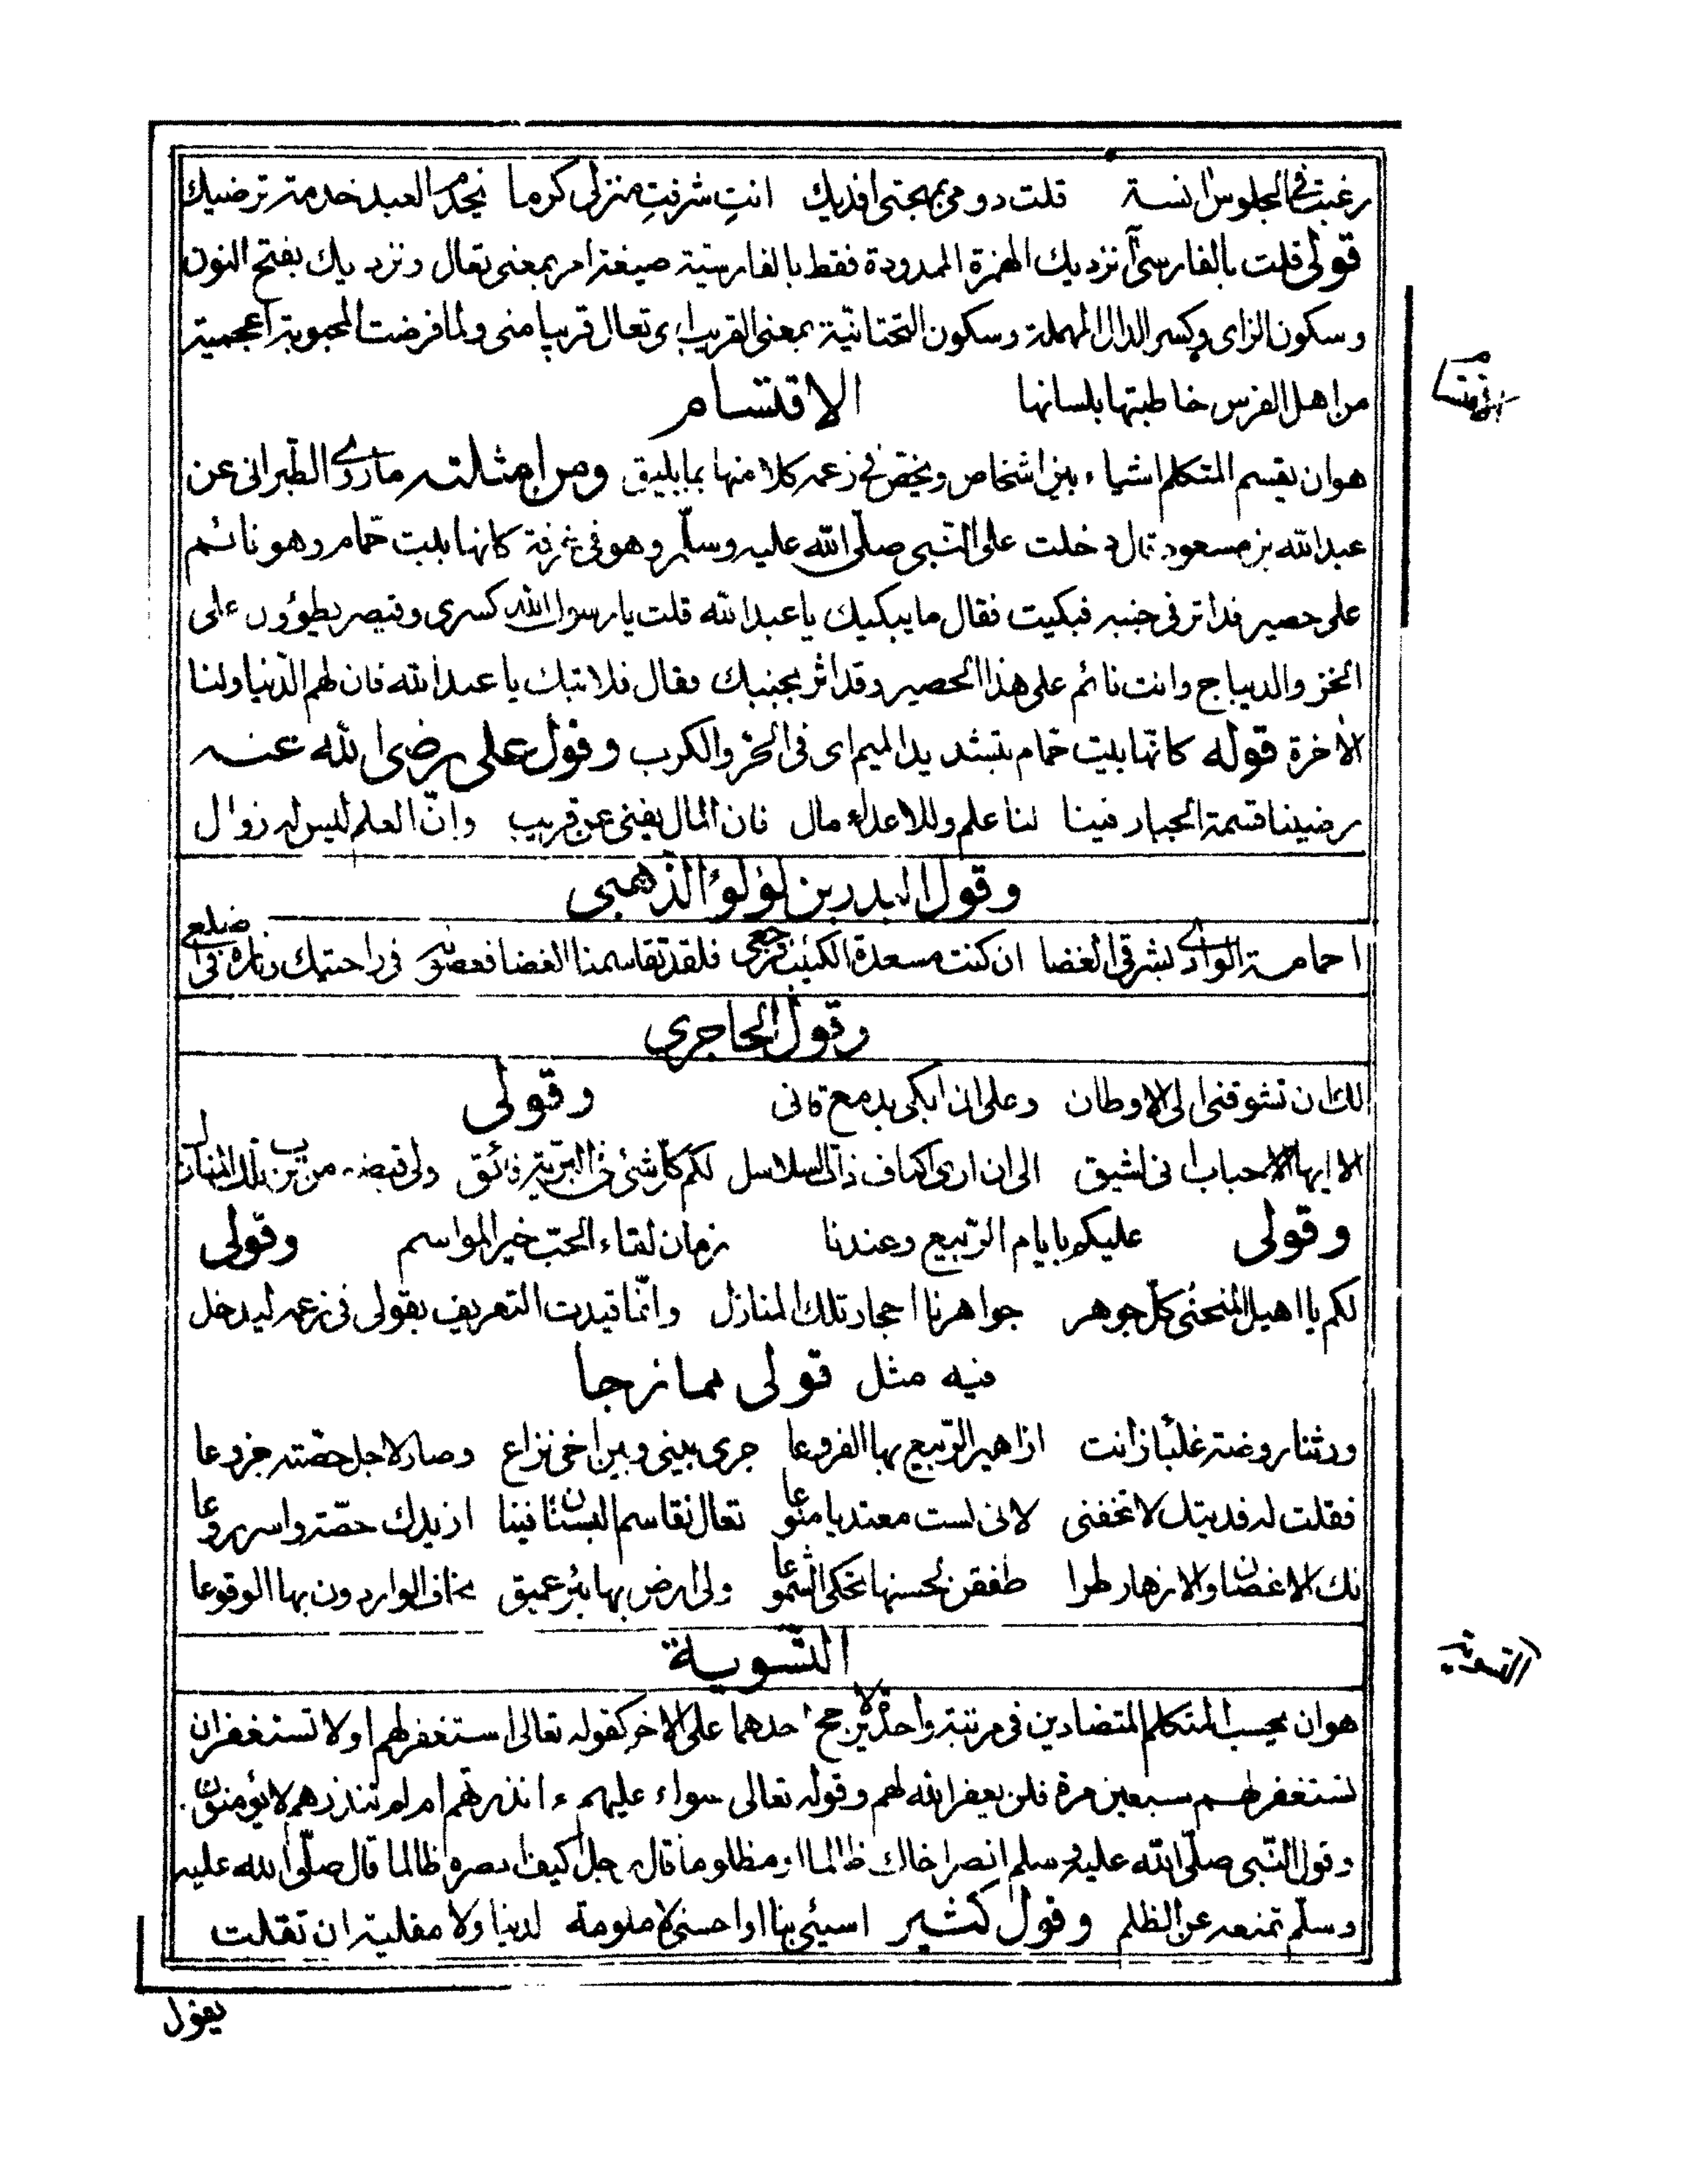 رغبت في الجلوس آنسة قلت دومي بمهجتي افديك انتِ شرفتِ منزلى كرما يخدم العبد خدمة ترضيك
قولى قلت بالفارسى آ نزديك الهمزة الممدودة فقط بالفارسية صيغة امر بمعنى تعال ونزديك بفتح النون
وسكون الزاى وكسر الدال المهملة وسكون التحتانية بمعنى القريب اى تعال قريبا منى ولما فرضت المحبوبة اعجمية
من اهل الفرس خاطبتها بلسانها الاقتسام
الاقتسام
هو ان يقسم المتكلم اشياء بين اشخاص ويختص فى زعمه كلا منها بما يليق ومن امثلته ما روى الطبرانى عن
عبد الله بن مسعود قال دخلت على النبى صلّى الله عليه وسلّم وهو فى غرفة كانها بيت حمام وهو نائم
على حصير قد اثر فى جنبه فبكيت فقال ما يبكيك يا عبد الله قلت يا رسول الله كسرى وقيصر يطؤون على
الخز والديباج وانت نائم على هذا الحصير وقد اثر بجنبك فقال فلا تبك يا عبد الله فان لهم الدّنيا ولنا
الأخرة قوله كانّها بيت حمام بتشديد الميم اى فى الحرّ والكرب وقول على رضى الله عنه
رضينا قسمة الجبار فينا لنا علم وللاعداء مال فان المال يفنى عن قريب وانّ العلم ليس له زوال
وقول البدر بن لؤلؤ الذّهبى
احامة الوادي بشرقى الغضا ان كنت مسعدة الكئيب فرجعي فلقد تقاسمنا الغضا فغصونه فى راحتيك وناره فى اضلعي
وقول الحاجرى
لك ان تشوقنى الى الاوطان وعلى ان ابكى بدمع قانى وقولى
الا ايها الاحباب انى لشيق الى ان ارى اكناف ذات السلاسل لكم كلّ شئ فى البريّة فائق ولى قبضة من ترب تلك المنازل
وقولى عليكم بايام الرّبيع وعندنا زمان لقاء الحبّ خير المواسم وقولى
لكم يا اهيل المنحنى كلّ جوهر جواهرنا احجار تلك المنازل وانّما قيدت التعريف بقولى فى زعمه ليدخل
فيه مثل قولى ممازحا
ورثنا روضة غلبا زانت ازاهير الرّبيع بها الفروعا جرى بينى وبين اخى نزاع وصار لاجل حصّته جزوعا
فقلت له فديتك لا تخفنى لانى لست معتديا منوعا تعال نقاسم البستان فينا ازيدك حصّة واسر روعا
فلك الاغصان والازهار طرا طفقن بحسنها تحكى الشموعا ولى ارض بها بئر عميق يخاف الواردون بها الوقوعا
التّسوية
التسوية
هو ان يحسب المتكلم المتضادين فى مرتبة واحدة لا يرجح احدهما على الاخر كقوله تعالى استغفر لهم او لا تستغفر ان
تستغفر لهم سبعين مرة فلن يغفر الله لهم وقوله تعالى سواء عليهم ءانذرتهم ام لم تنذرهم لا يؤمنون
وقول النّبى صلّى الله عليه وسلم انصر اخاك ظالما او مظلوما قال رجل كيف انصره ظالما قال صلّى الله عليه
وسلّم تمنعه عن الظلم وقول كثير اسيئى بنا او احسنى لا ملومة لدينا ولا مقلية ان تقلت
يقول